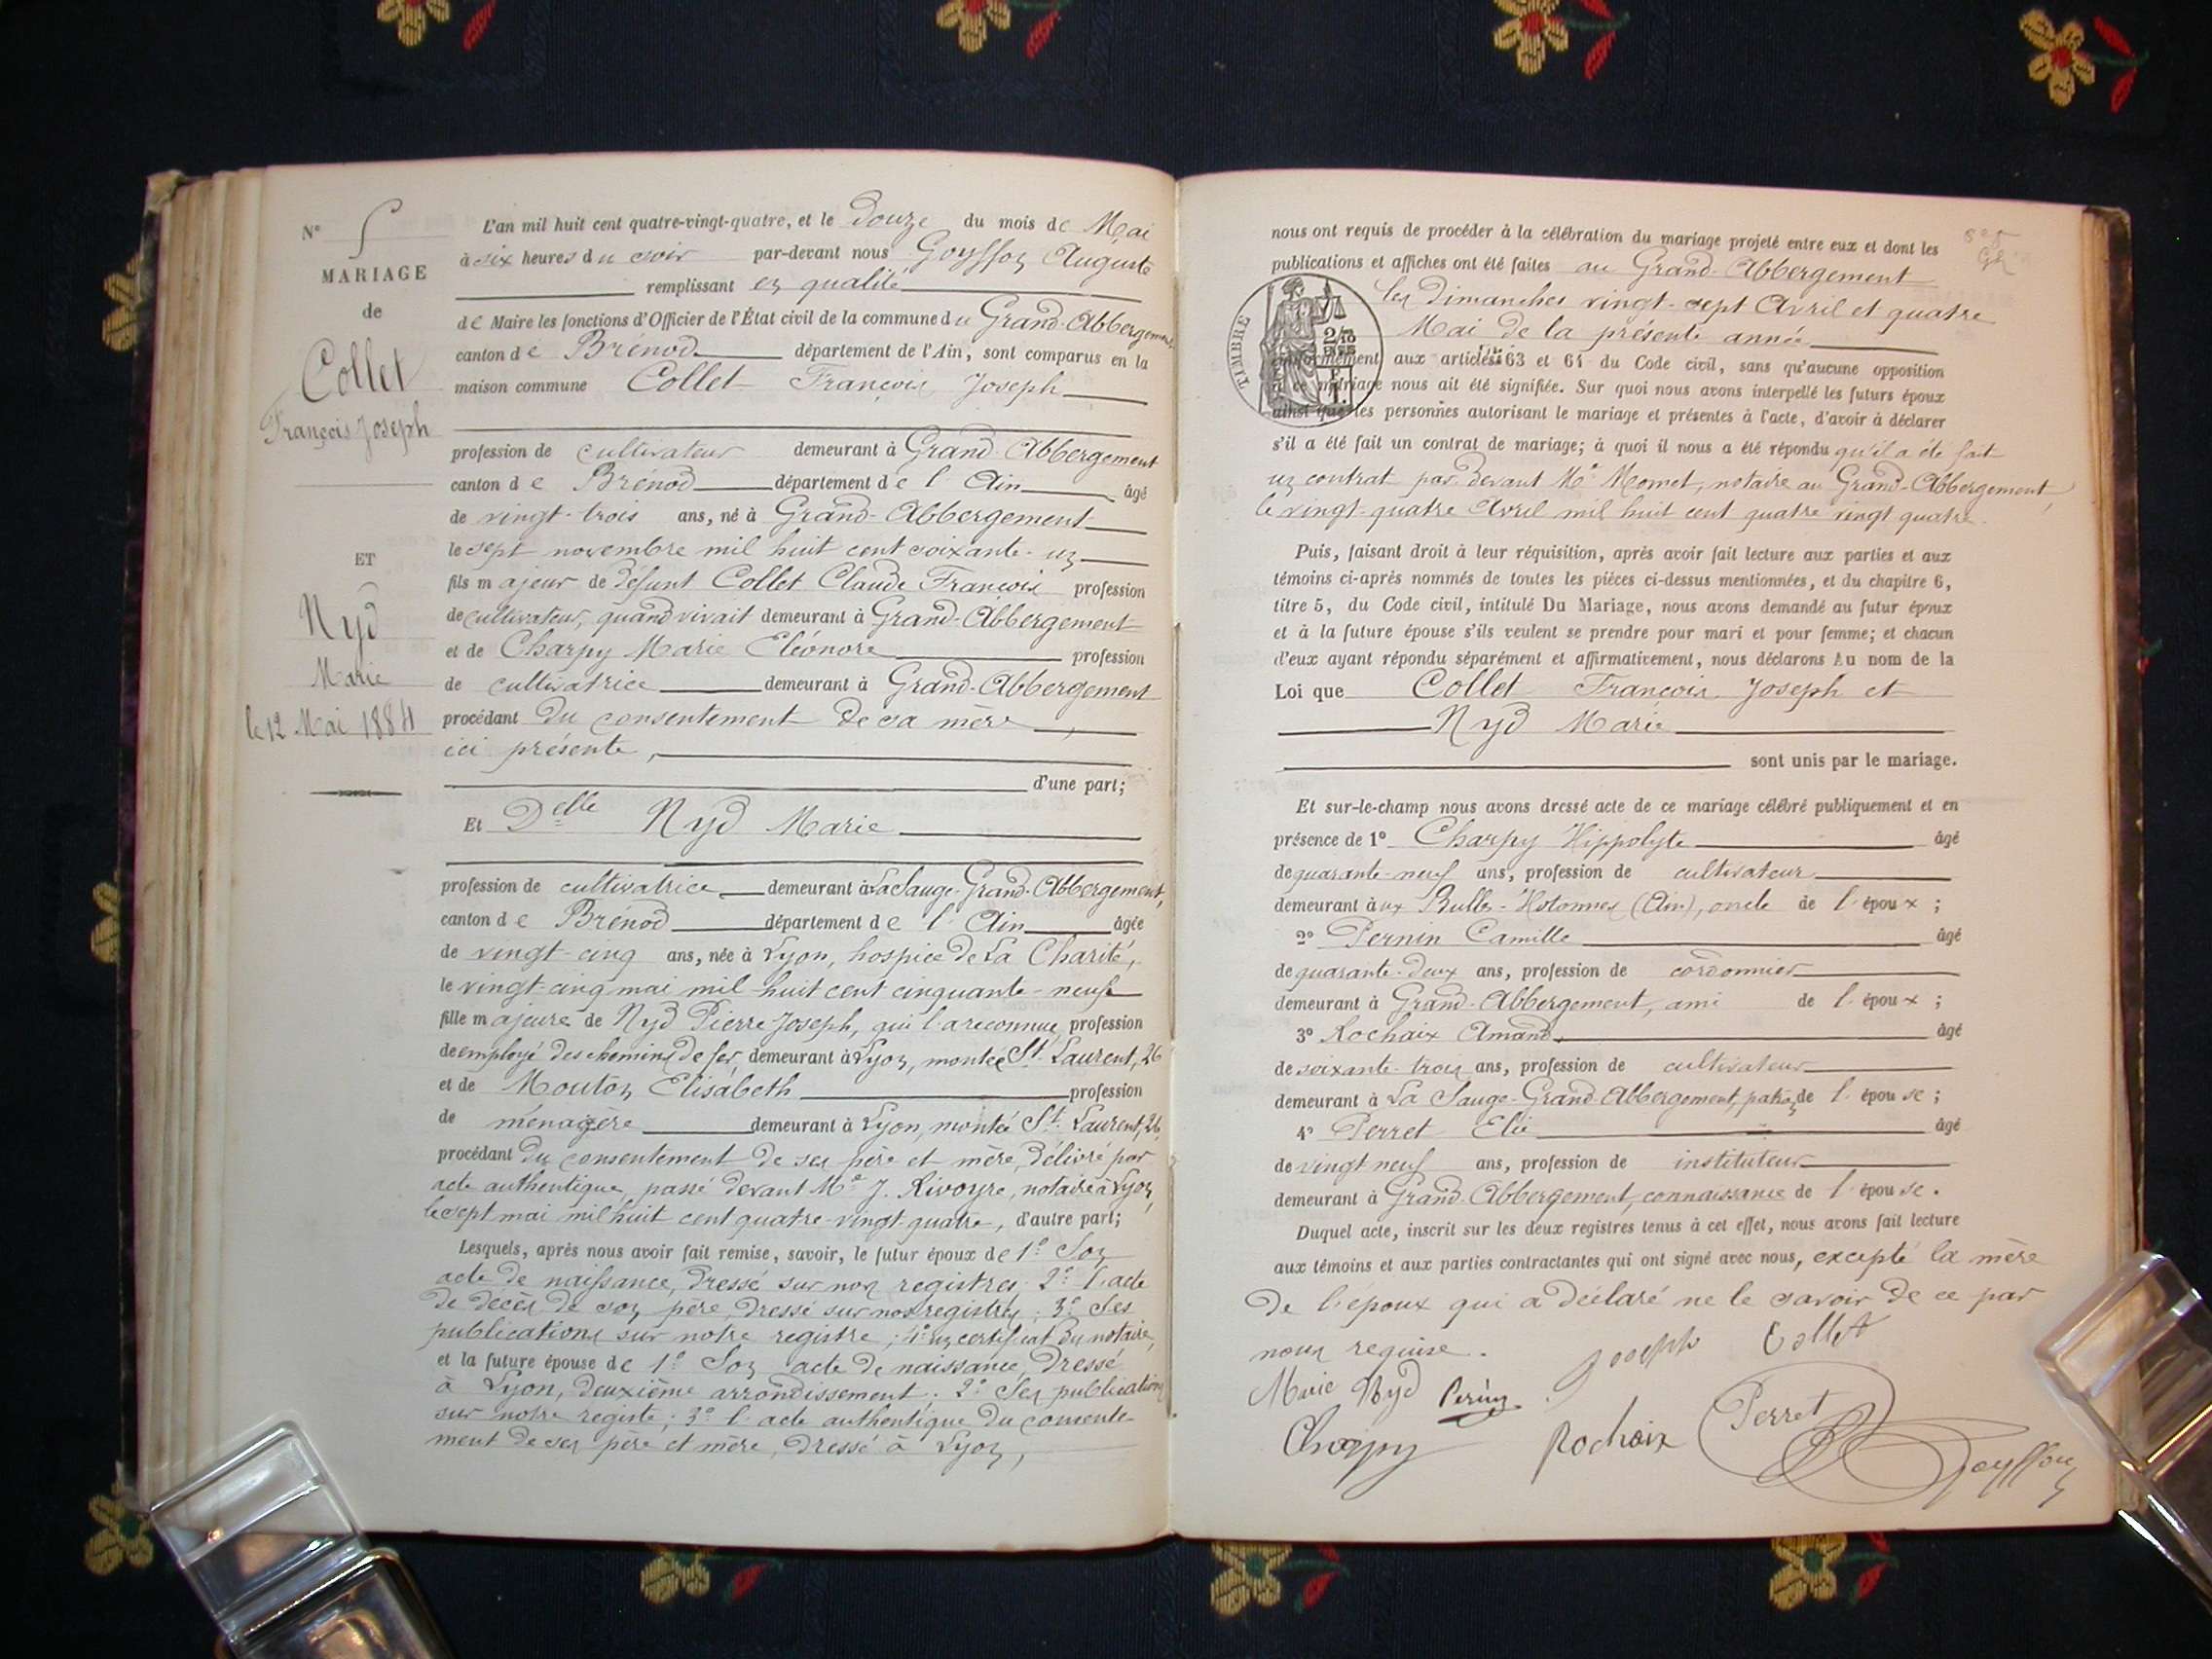 N° 5
MARIAGE
de
Collet
François Joseph
ET
Nyd
Marie
le 12 Mai 1884
L'an mil huit cent quatre-vingt-quatre, et le douze du mois de Mai
à six heures du soir par-devant nous Goyffon Auguste
remplissant en qualité
de Maire les fonctions d'Officier de l'État civil de la commune du Grand-Abbergement
canton de Brénod département de l'Ain, sont comparus en la
maison commune Collet François Joseph
profession de cultivateur demeurant à Grand-Abbergement
canton de Brénod département de l'Ain âgé
de vingt-trois ans, né à Grand-Abbergement
le sept novembre mil huit cent soixante-un
fils majeur de défunt Collet Claude François profession
de cultivateur, quand vivait demeurant à Grand-Abbergement
et de Charpy Marie Eléonore profession
de cultivatrice demeurant à Grand-Abbergement
procédant du consentement de sa mère,
ici présente,
d'une part;
Et Delle Nyd Marie
profession de cultivatrice demeurant à La Sauge-Grand-Abbergement,
canton de Brénod département de l'Ain âgée
de vingt-cinq ans, née à Lyon, hospice de La Charité,
le vingt-cinq mai mil-huit cent cinquante-neuf
fille majeure de Nyd Pierre Joseph, qui l'a reconnue, profession
de employé des chemins de fer, demeurant à Lyon, montée St. Laurent, 26
et de Mouton Elisabeth profession
de ménagère demeurant à Lyon, montée St. Laurent, 26,
procédant du consentement de ses père et mère, délivré par
acte authentique, passé devant Me J. Rivoyre, notaire à Lyon,
le sept mai mil huit cent quatre-vingt-quatre, d'autre part;
Lesquels, après nous avoir fait remise, savoir, le futur époux de 1° Son
acte de naissance, dressé sur nos registres; 2° l'acte
de décès de son père, dressé sur nos registres; 3° Ses
publications sur notre registre; 4° un certificat du notaire,
et la future épouse de 1° Son acte de naissance, dressé
à Lyon, deuxième arrondissement; 2° Ses publications
sur notre registre; 3° l'acte authentique du consente-
ment de ses père et mère, dressé à Lyon,
nous ont requis de procéder à la célébration du mariage projeté entre eux et dont les
publications et affiches ont été faites au Grand-Abbergement
les Dimanches vingt-sept Avril et quatre
Mai de la présente année
TIMBRE
conformément aux articles 63 et 64 du Code civil, sans qu'aucune opposition
à ce mariage nous ait été signifiée. Sur quoi nous avons interpellé les futurs époux
ainsi que les personnes autorisant le mariage et présentes à l'acte, d'avoir à déclarer
s'il a été fait un contrat de mariage; à quoi il nous a été répondu qu'il a été fait
un contrat par devant Me Momet, notaire au Grand-Abbergement,
le vingt-quatre Avril mil huit cent quatre vingt quatre.
Puis, faisant droit à leur réquisition, après avoir fait lecture aux parties et aux
témoins ci-après nommés de toutes les pièces ci-dessus mentionnées, et du chapitre 6,
titre 5, du Code civil, intitulé Du Mariage, nous avons demandé au futur époux
et à la future épouse s'ils veulent se prendre pour mari et pour femme; et chacun
d'eux ayant répondu séparément et affirmativement, nous déclarons Au nom de la
Loi que Collet François Joseph et
Nyd Marie
sont unis par le mariage.
Et sur-le-champ nous avons dressé acte de ce mariage célébré publiquement et en
présence de 1° Charpy Hippolyte âgé
de quarante-neuf ans, profession de cultivateur
demeurant aux Bulles-Hotonnes (Ain), oncle de l'époux;
2° Pernin Camille âgé
de quarante-deux ans, profession de cordonnier
demeurant à Grand-Abbergement, ami de l'époux;
3° Rochaix Amand, âgé
de soixante-trois ans, profession de cultivateur
demeurant à La Sauge-Grand-Abbergement, patron de l'épouse;
4° Perret Elie âgé
de vingt neuf ans, profession de instituteur
demeurant à Grand-Abbergement, connaissance de l'épouse.
Duquel acte, inscrit sur les deux registres tenus à cet effet, nous avons fait lecture
aux témoins et aux parties contractantes qui ont signé avec nous, excepté la mère
de l'époux qui a déclaré ne le savoir de ce par
nous requise.
Joseph Collet
Marie Nyd Pernin
Charpy Rochaix Perret Goyffon